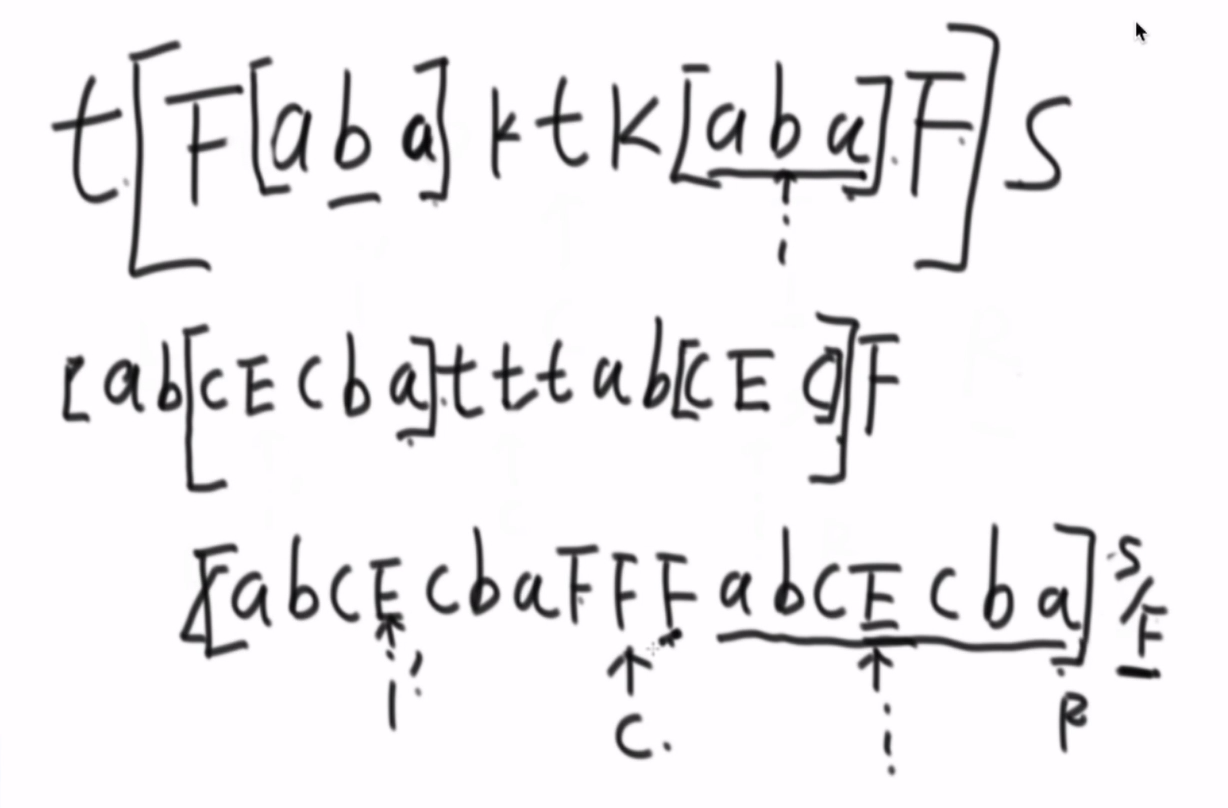 t[F[aba]ktk[aba]F]s
[ab[cEcba]tttab[cEc]]F
[abcEcbaFFFabcEcba]s/F
i' C. i R